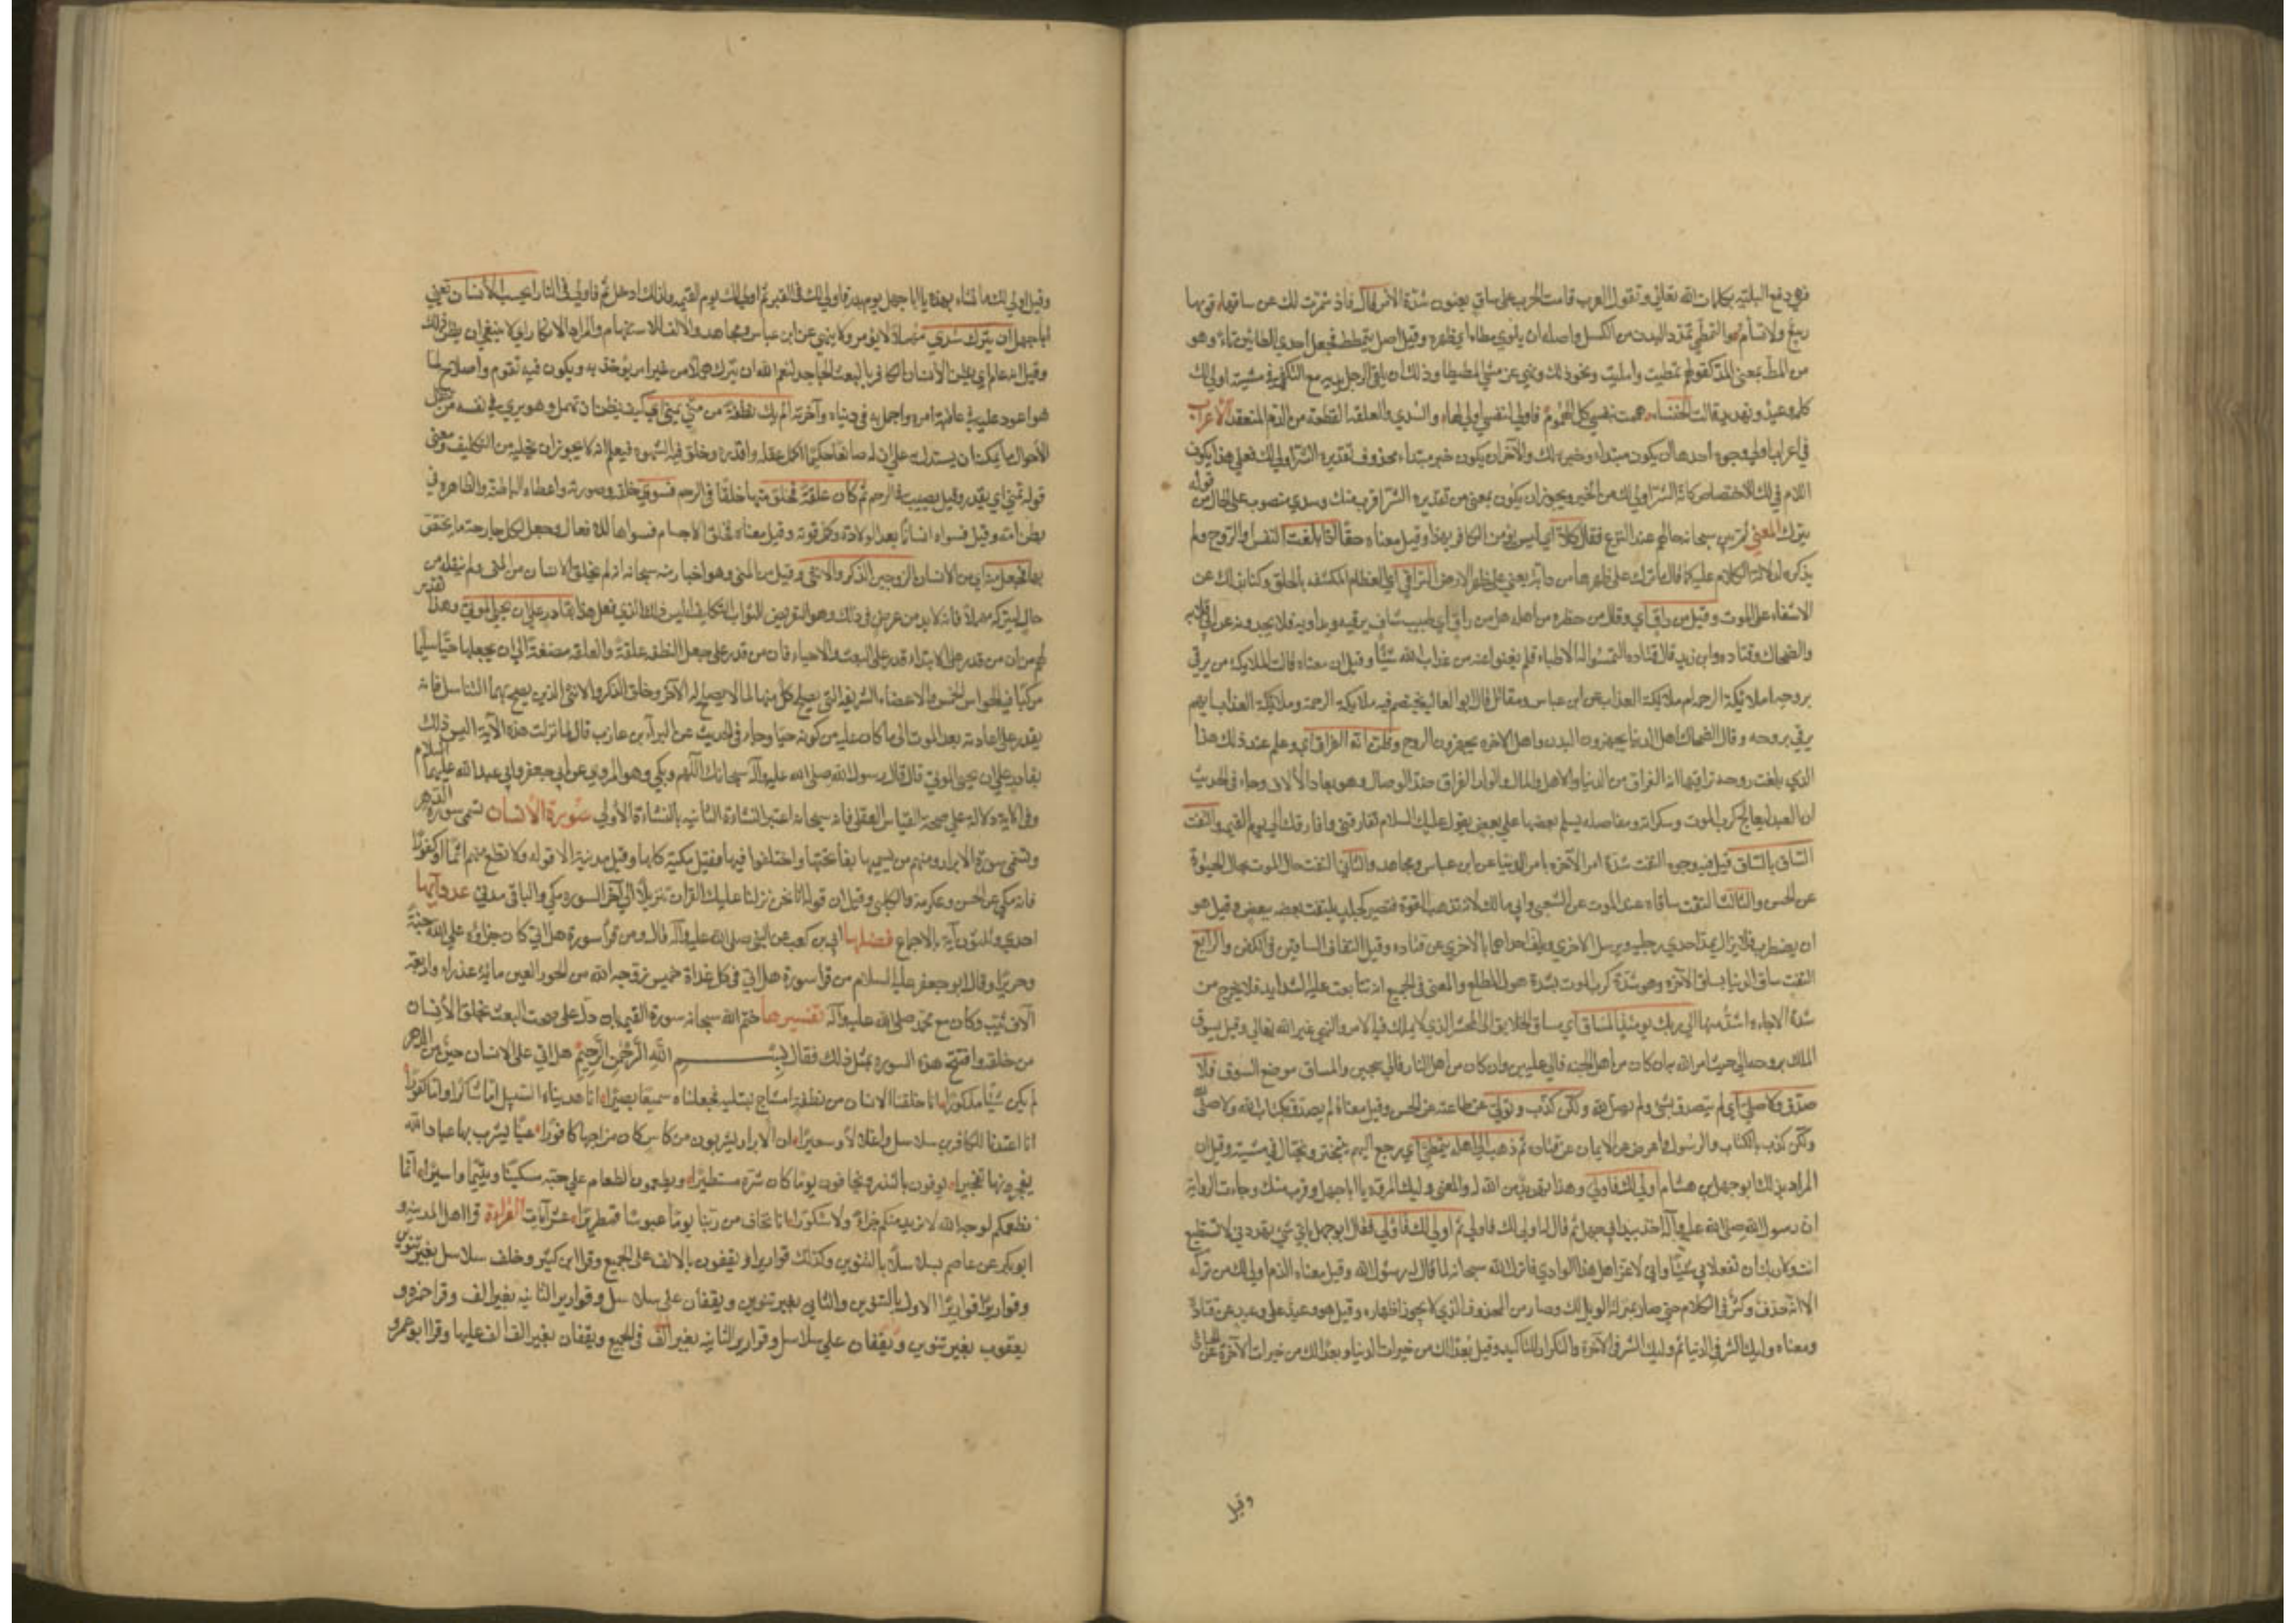 فهي دفع البلية بكلمات الله تعالى وتقول العرب قامت الحرب على ساق يعنون شدة الامر قال فاذ شمرت لك عن ساقها فويها
ربيع ولا تسأم هو التمطي تمدد البدن من الكسل واصله ان يلوي مطاه اي ظهره وقيل اصل يتمطى يتمطط فجعل احدي الطائين ياء وهو
من المط بمعنى المد كقولهم تمطيت وامليت ونحو ذلك ونهي عن مشي المطيطا وذلك ان يلقي الرجل يديه مع التكفي في مشيته اولى لك
كلمة وعيد وتهديد قالت الخنساء هممت بنفسي كل الهموم فاولى لنفسي اولى لها والسدي والعلقة القطعة من الدم المنعقد الاعراب
في اعراب اولى وجوه احدها ان يكون مبتداء وخبره لك والآخر ان يكون خبر مبتداء محذوف تقديره الشر اولى لك فعلى هذا يكون
اللام في لك للاختصاص كانه الشر اولى لك من الخير ويجوز ان يكون بمعنى من تقديره الشر اقرب منك وسدي منصوب على الحال من قوله
يترك المعنى ثم بين سبحانه حالهم عند النزع فقال كلا اي ليس يؤمن الكافر بهذا وقيل معناه حقا اذا بلغت النفس او الروح ولم
يذكره لدلالة الكلام عليه كما قال ما ترك على ظهرها من دابة يعني على ظهر الارض التراقي اي العظام المكتنفة بالحلق وكنى بذلك عن
الاشفاء على الموت وقيل من راق اي وقال من حضره من اهله هل من راق اي طبيب شاف يرقيه ويداويه فلا يجدونه عن ابي قلابة
والضحاك وقتادة وابن زيد قال قتادة التمسوا له الاطباء فلم يغنوا عنه من عذاب الله شيئا وقيل ان معناه قالت الملائكة من يرقى
بروحه املائكة الرحمة ام ملائكة العذاب عن ابن عباس ومقاتل قال ابو العالية يختصم فيه ملائكة الرحمة وملائكة العذاب ايهم
يرقى بروحه وقال الضحاك اهل الدنيا يجهزون البدن واهل الآخرة يجهزون الروح وظن انه الفراق اي وعلم عند ذلك هذا
الذي بلغت روحه تراقيها انه الفراق من الدنيا والاهل والمال والولد والفراق ضد الوصال وهو بعاد الآلاف وجاء في الحديث
ان العبد ليعالج كرب الموت وسكراته ومفاصله يسلم بعضها على بعض يقول عليك السلام تفارقني وافارقك الى يوم القيمة والتفت
الساق بالساق قيل فيه وجوه التفت شدة امر الآخرة بامر الدنيا عن ابن عباس ومجاهد والثاني التفت حال الموت بحال الحيوة
عن الحسن والثالث التفت ساقاه عند الموت عن الشعبي وابي مالك لانه تذهب القوة فتصير كجلد يلتف بعضه ببعض وقيل هو
ان يضطرب فلا يزال يمد احدى رجليه ويرسل الاخرى ويلف احداهما بالاخرى عن قتادة وقيل التفاف الساقين في الكفن والرابع
التفت ساق الدنيا بساق الآخرة وهو شدة كرب الموت بشدة هول المطلع والمعنى في الجميع انه تتابعت عليه الشدايد فلا يخرج من
شدة الا جاءه اشد منها الى ربك يومئذ المساق اي مساق الخلايق الى المحشر الذي لا يملك فيه الامر والنهي غير الله تعالى وقيل يسوق
الملك بروحه الى حيث امر الله به ان كان من اهل الجنة فالى عليين وان كان من اهل النار فالى سجين والمساق موضع السوق فلا
صدق ولا صلى اي لم يتصدق بشئ ولم يصل لله ولكن كذب وتولى عن طاعته عن الحسن وقيل معناه لم يصدق بكتاب الله ولا صلى لله
ولكن كذب بالكتاب والرسول واعرض عن الايمان عن قتادة ثم ذهب الى اهله يتمطى اي يرجع اليهم يتبختر ويختال في مشيته وقيل ان
المراد بذلك ابو جهل بن هشام اولى لك فاولى وهذا تهديد من الله له والمعنى وليك المكروه يا ابا جهل وقرب منك وجاءت الرواية
ان رسول الله صلى الله عليه وآله اخذ بيد ابي جهل ثم قال له اولى لك فاولى ثم اولى لك فاولى فقال ابو جهل باي شئ تهددني لا تستطيع
انت وربك ان تفعلا بي شيئا واني لاعز اهل هذا الوادي فانزل الله سبحانه كما قال له رسول الله وقيل معناه الذم اولى لك من تركه
الا انه حذف وكثر في الكلام حتى صار بمنزلة الويل لك وصار من المحذوف الذي لا يجوز اظهاره وقيل هو وعيد على وعيد عن قتادة
ومعناه وليك الشر في الدنيا ثم وليك الشر في الآخرة والتكرار للتاكيد وقيل بعدا لك من خيرات الدنيا وبعدا لك من خيرات الآخرة عن الجبائي
وقيل
وقيل اولى لك ما تشاء بهذه يا ابا جهل يوم بدر فاولى لك في القبر ثم اولى لك يوم القيمة ولذلك ادخل ثم فاولى في النار ايحسب الانسان يعني
ابا جهل ان يترك سدي مهملا لا يؤمر ولا ينهى عن ابن عباس ومجاهد والالف للاستفهام والمراد الانكار اي لا ينبغي ان يظن ذلك
وقيل انه عام اي يظن الانسان الكافر بالبعث الجاحد لنعم الله ان يترك هملا من غير امر يؤخذ به ويكون فيه تقويم واصلاح لما
هو اعود عليه في عاقبة امره واجمل به في دنياه وآخرته الم يك نطفة من مني يمنى اي كيف يظن ان يهمل وهو يرى في نفسه من تنقل
الاحوال ما يمكنه ان يستدل به على ان له صانعا حكيما اكمل عقله واقدره وخلق فيه الشهوة فيعلم انه لا يجوز ان يخليه من التكليف ومعنى
قوله تمنى اي يقدر وقيل يصبب في الرحم ثم كان علقة فخلق منها خلقا في الرحم فسوى خلقه وصورته واعضاءه الباطنة والظاهرة في
بطن امه وقيل فسواه انسانا بعد الولادة وكمل قوته وقيل معناه فخلق الاجسام فسواها للافعال وجعل لكل جارحة ما يختص
بها فجعل منه اي من الانسان الزوجين الذكر والانثى وقيل من المني وهو اخبار منه سبحانه انه لم يخلق الانسان من المني ولم ينقله من
حال ليتركه مهملا فانه لابد من غرض في ذلك وهو التعريض للثواب بالتكليف اليس ذلك الذي فعل هذا بقادر على ان يحيي الموتى وهذا تقدير
لهم من ان من قدر على الابتداء قدر على البعث والاحياء فان من قدر على جعل النطفة علقة والعلقة مضغة الى ان يجعلها حيا سليما
مركبا فيه الحواس الخمس والاعضاء الشريفة التي يصلح كل منها لما لا يصلح له الآخر وخلق الذكر والانثى الذين يصح بهما التناسل فانه
يقدر على اعادته بعد الموت الى ما كان عليه من كونه حيا وجاء في الحديث عن البراء بن عازب قال لما نزلت هذه الآية اليس ذلك
بقادر على ان يحيي الموتى قال قال رسول الله صلى الله عليه وآله سبحانك اللهم وبلى وهو المروي عن ابي جعفر وابي عبد الله عليهما السلام
وفي الآية دلالة على صحة القياس العقلي فانه سبحانه اعتبر النشاءة الثانية بالنشاءة الاولى سورة الانسان تسمى سورة الدهر
وتسمى سورة الابرار ومنهم من يسميها بفاتحتها واختلفوا فيها فقيل مكية كلها وقيل مدنية الا قوله ولا تطع منهم آثما او كفورا
فانه مكي عن الحسن وعكرمة والكلبي وقيل ان قوله انا نحن نزلنا عليك القرآن تنزيلا الى آخر السورة مكي والباقي مدني عدد آيها
احدى وثلثون آية بالاجماع فضلها ابي بن كعب عن النبي صلى الله عليه وآله قال ومن قرأ سورة هل اتى كان جزاؤه على الله جنة
وحريرا وقال ابو جعفر عليه السلام من قرا سورة هل اتى في كل غداة خميس زوجه الله من الحور العين مائة عذراء واربعة
آلاف ثيب وكان مع محمد صلى الله عليه وآله تفسيرها ختم الله سبحانه سورة القيمة بان دل على صحة البعث بخلق الانسان
من خلقه وافتتح هذه السورة بمثل ذلك فقال بسم الله الرحمن الرحيم هل اتى على الانسان حين من الدهر
لم يكن شيئا مذكورا انا خلقنا الانسان من نطفة امشاج نبتليه فجعلناه سميعا بصيرا انا هديناه السبيل اما شاكرا واما كفورا
انا اعتدنا للكافرين سلاسل واغلالا وسعيرا ان الابرار يشربون من كاس كان مزاجها كافورا عينا يشرب بها عباد الله
يفجرونها تفجيرا يوفون بالنذر ويخافون يوما كان شره مستطيرا ويطعمون الطعام على حبه مسكينا ويتيما واسيرا انما
نطعمكم لوجه الله لا نريد منكم جزاء ولا شكورا انا نخاف من ربنا يوما عبوسا قمطريرا عشر آيات القراءة قرا اهل المدينة و
ابو بكر عن عاصم سلاسلا بالتنوين وكذلك قواريرا ويقفون بالالف على الجميع وقرا ابن كثير وخلف سلاسل بغير تنوين
وقواريرا قواريرا الاولى بالتنوين والثاني بغير تنوين ويقفان على سلاسل وقوارير الثانية بغير الف وقرا حمزة و
يعقوب بغير تنوين ويقفان على سلاسل وقوارير الثانية بغير الف في الجميع ويقفان بغير الف الف عليها وقرا ابو عمرو